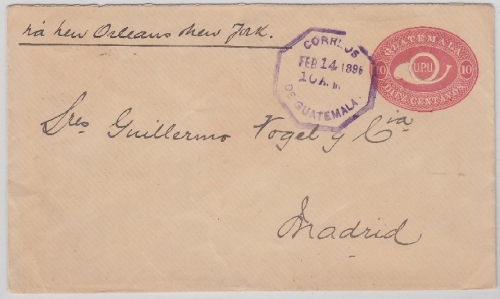 via New Orleans New York.
CORREOS
FEB 14 1896
10 A.M.
DE GUATEMALA.
GUATEMALA
10 UPU 10
DIEZ CENTAVOS
Sres Guillermo Vogel y Cia
Madrid